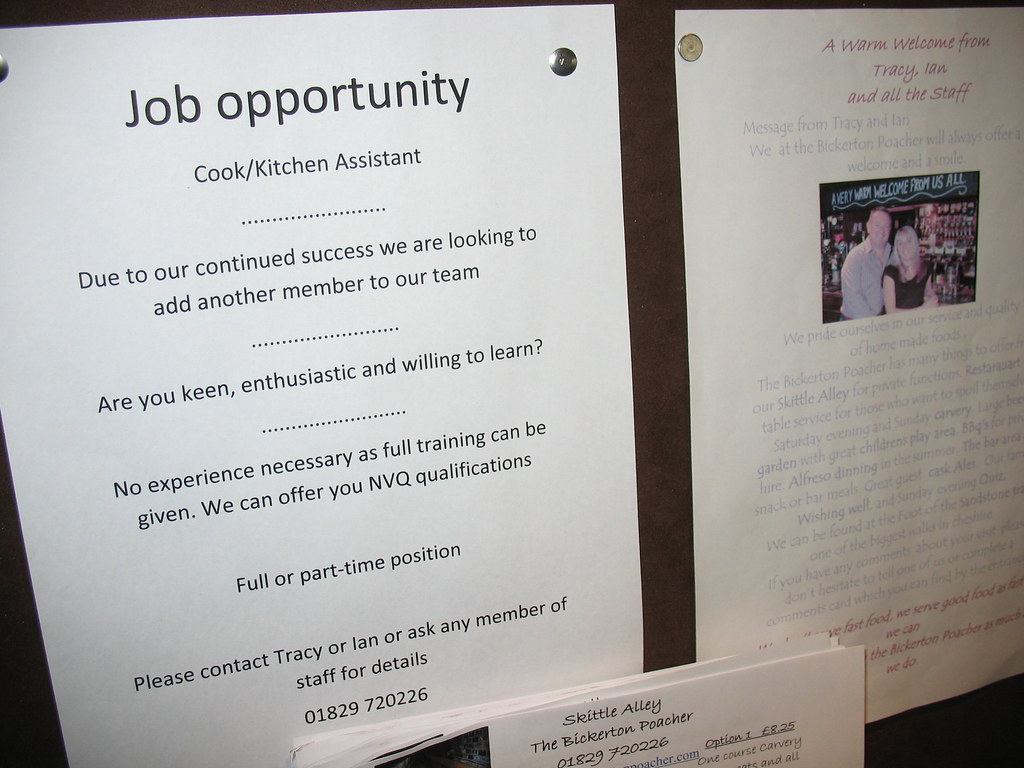 Job opportunity
Cook/Kitchen Assistant
........................
Due to our continued success we are looking to
add another member to our team
........................
Are you keen, enthusiastic and willing to learn?
........................
No experience necessary as full training can be
given. We can offer you NVQ qualifications
Full or part-time position
Please contact Tracy or Ian or ask any member of
staff for details
01829 720226
A Warm Welcome from
Tracy, Ian
and all the Staff
Message from Tracy and Ian
We at the Bickerton Poacher will always offer a
welcome and a smile.
A VERY WARM WELCOME FROM US ALL
We pride ourselves in our service and quality
of home made foods.
The Bickerton Poacher has many things to offer
our Skittle Alley for private functions. Restaraunt
table service for those who want to spoil
Saturday evening and Sunday carvery. Large beer
garden with great childrens play area. BBq's for
hire. Alfreso dinning in the summer. The bar area
snack or bar meals. Great guest cask Ales. Our
Wishing well, and Sunday evening Quiz.
We can be found at the Foot of the Sandstone
one of the biggest walks in cheshire
If you have any comments about your visit
don't hesitate to tell one of us or complete a
comments card which you can find by the
fast food, we serve good food as
we can
the Bickerton Poacher as much
we do.
Skittle Alley
The Bickerton Poacher
01829 720226
poacher.com
Option 1 £8.25
One course Carvery
and all